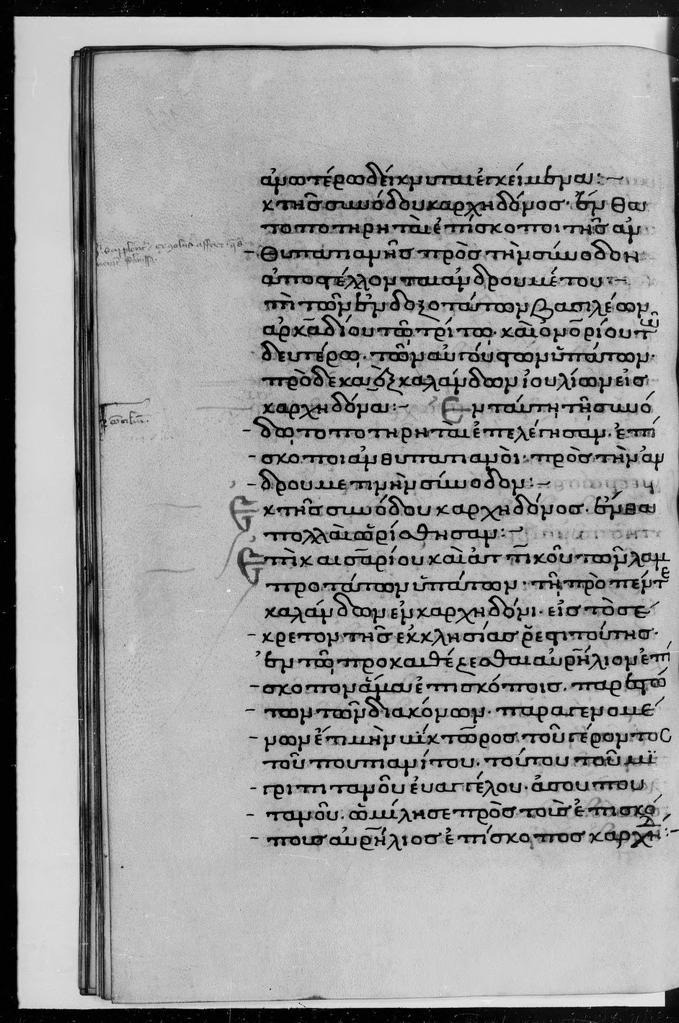 ἀνωτέρω δείκνυται ἐγκείμενα :~
κ τῆς συνόδου καρχηδόνος· ἔνθα
τοποτηρηταὶ ἐπίσκοποι τῆς ἀν
θυπατιανῆς πρὸς τὴν σύνοδον
ἀποστέλλονται ἀνδρουμέτου :~
πὶ τῶν ἐνδοξοτάτων βασιλέων
ἀρκαδίου τῶ τρίτω· καὶ ὁνορίου τῶ
δευτέρω· τῶν αὐγούστων ὑπάτων·
πρὸ δεκαὲξ καλανδῶν ἰουλίων εἰς
καρχηδόνα :~ Ἐν ταύτη τῆ συνό
δω τοποτηρηταὶ ἐπελέγησαν· ἐπί
σκοποι ἀνθυπατιανοὶ· πρὸς τὴν ἀν
δρουμετινὴν σύνοδον :~
Ἐκ τῆς συνόδου καρχηδόνος· ἔνθα
πολλὰ ὡρίσθησαν :~
Ἐπὶ καισαρίου καὶ ἀττικοῦ τῶν λαμ
προτάτων ὑπάτων· τῆ πρὸ πέντε
καλανδῶν ἐν καρχηδόνι· εἰς τὸ σε
κρετον τῆς ἐκκλησίας ρεστιτούτης·
ἐν τῶ προκαθέζεσθαι αὐρήλιον ἐπί
σκοπον ἅμα ἐπισκόποις· παρεστώ
των τῶν διακόνων· παραγενομέ
νων ἔτι μὴν υίκτωρος τοῦ γέροντος
τοῦ πουπιανίτου. τούτου τοῦ μι
γριπιτανοῦ εὐαγγέλου· ἀσουπου
τανοῦ· ὡμίλησε πρὸς τοὺς ἐπισκό
πους αὐρήλιος ἐπίσκοπος καρχη :~